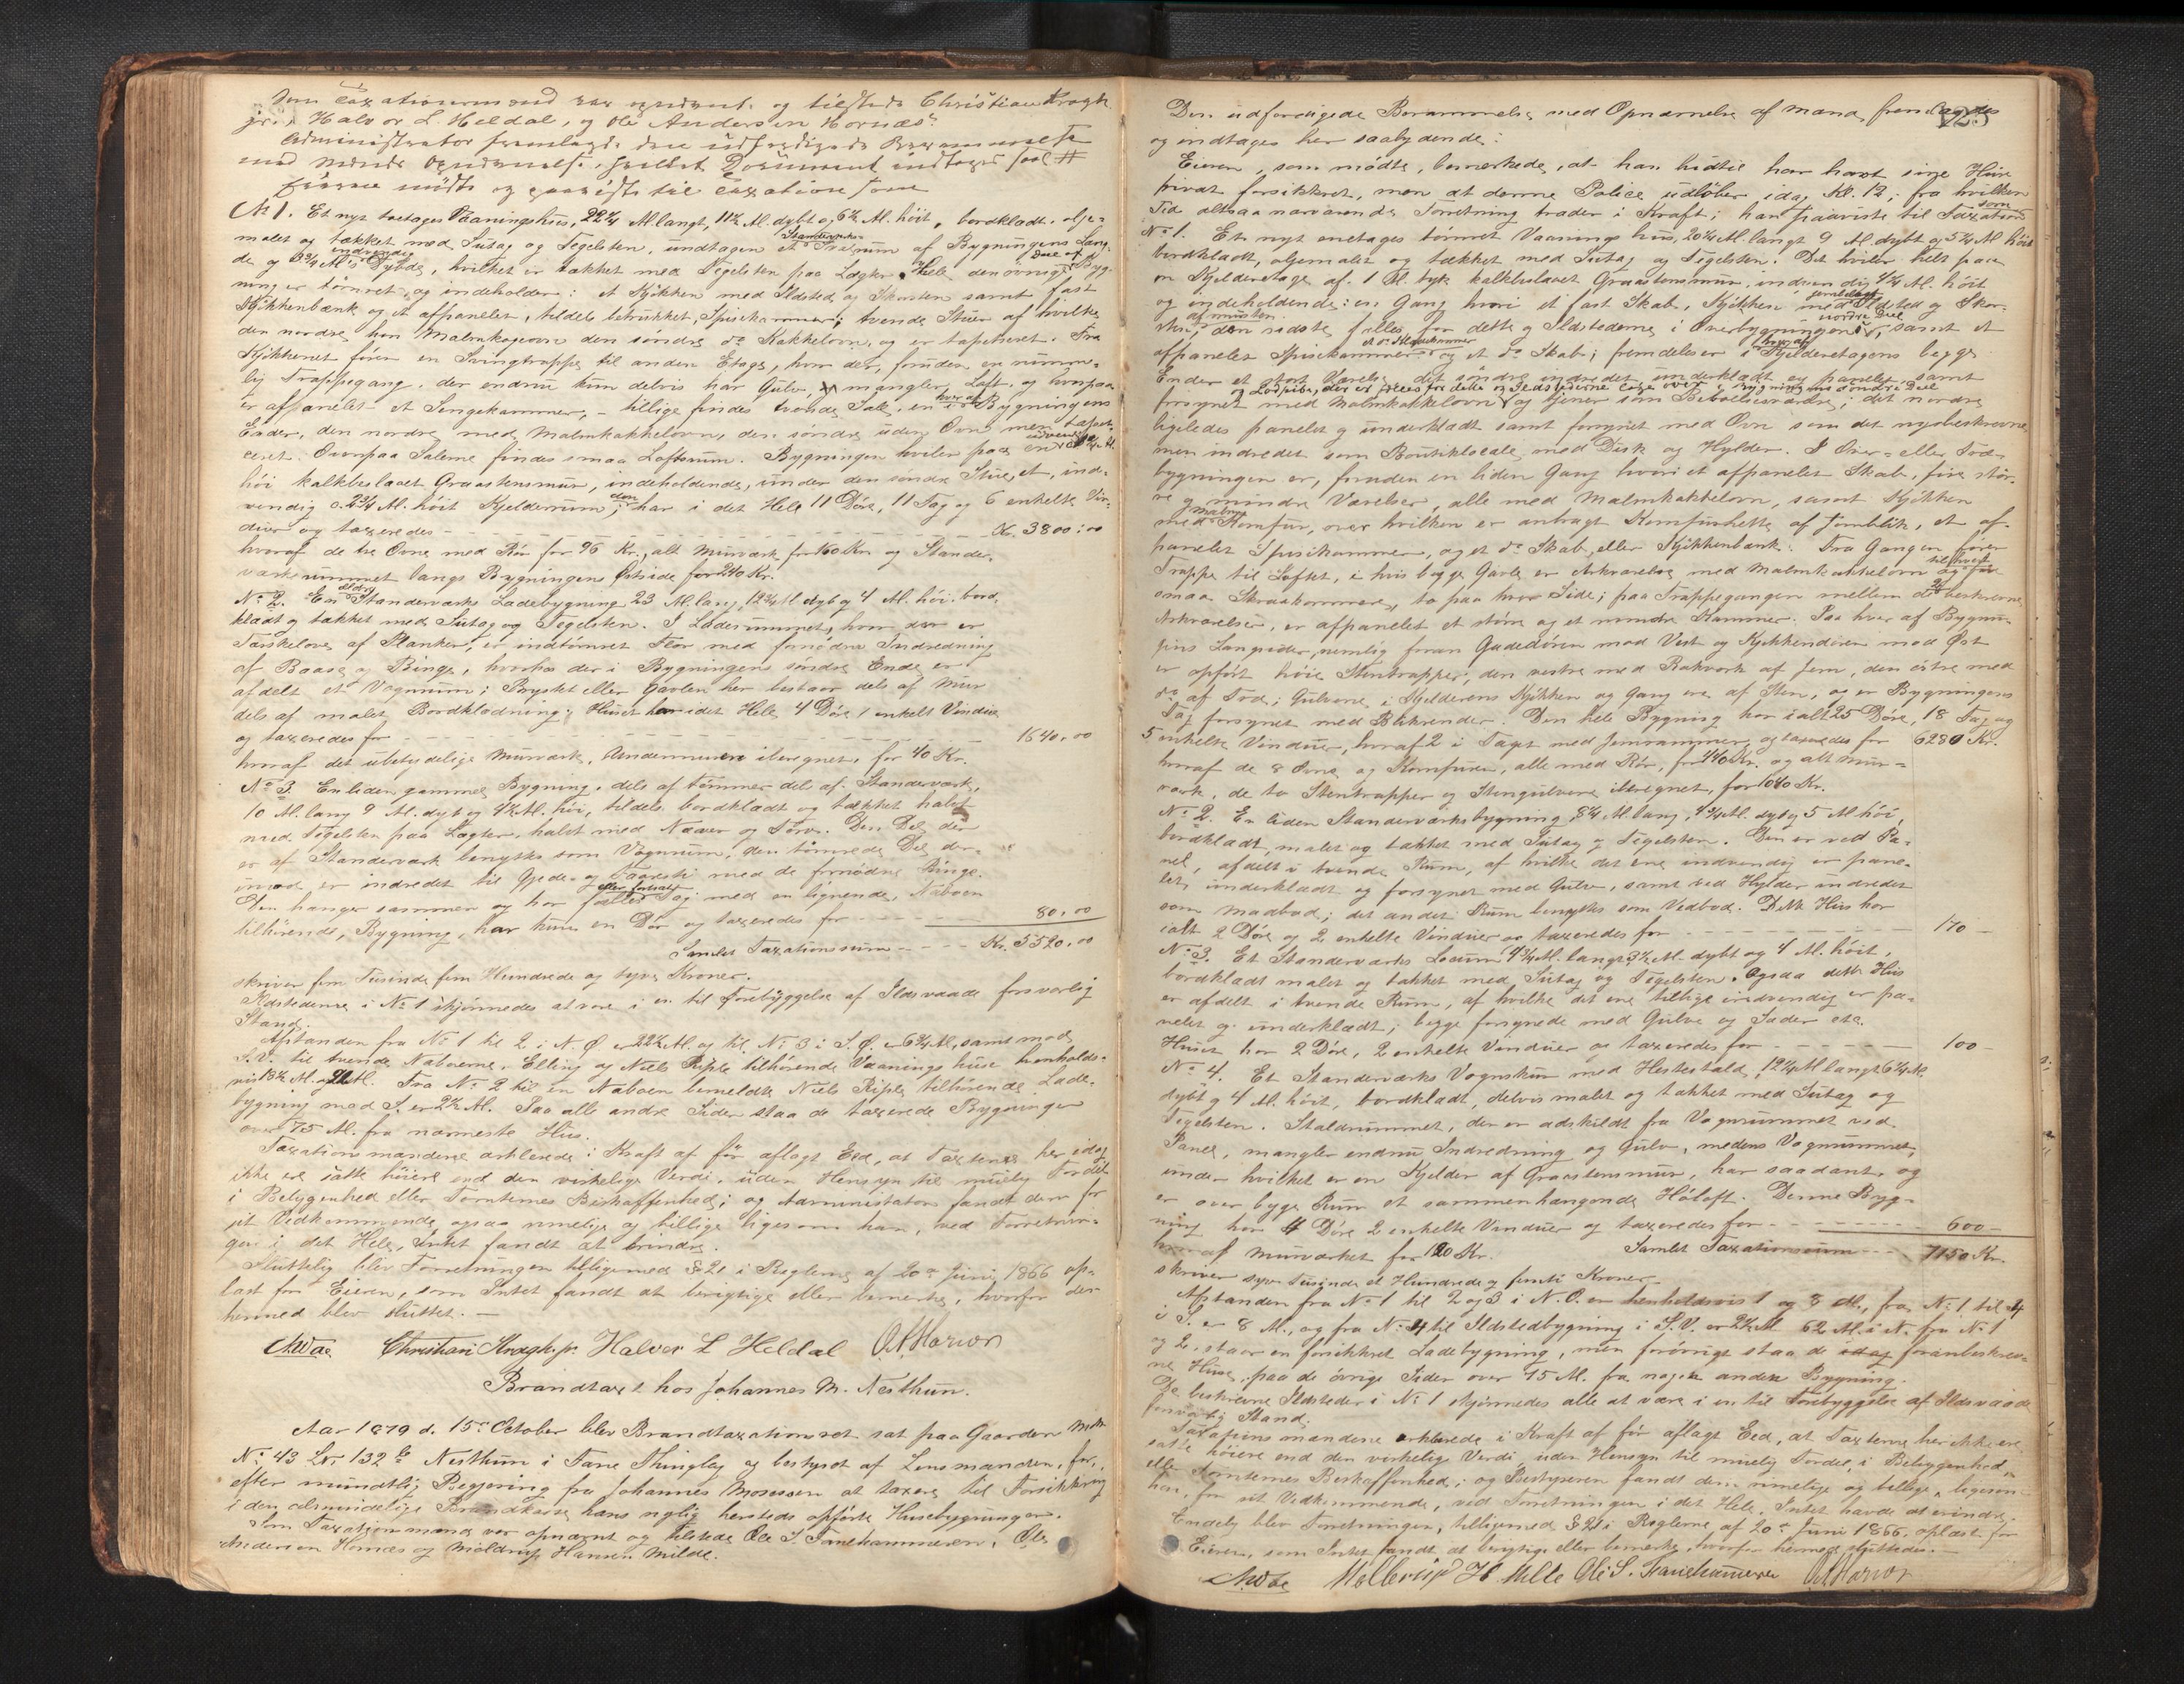 Som Taxationsmænd var opnævnt og tilstede Christian Kragh
jr., Halvor L. Heldal, og Ole Andersen Hornæs.
Administrator fremlagde den udfærdigede Berammelse
med Mænds Opnævnelse, hvilket Document indtages saal. #
Eieren mødte og paaviste til Taxation som
No 1. Et nyt toetages Vaaningshus, 22¼ Al. langt, 11½ Al. dybt og 6½ Al. høit, bordklædt, olje-
malet og tækket med Sutag og Tegelsten, undtagen et Standværks- Svalrum af Bygningens Læng-
de og 3¾ Al's indvendig Dybde, hvilket er tækket med Tegelsten paa Lægter. Hele den øvrige Deel af Byg-
ning er tømret, og indeholder: et Kjøkken med Ildsted og Skorsten samt fast
Kjøkkenbænk og et afpanelet, tildels betrukket, Spisekammer; tvende Stuer af hvilke
den nordre har Malmkogeovn den søndre do Kakkelovn, og er tapetseret. Fra
Kjøkkenet fører en Svingtrappe til anden Etage, hvor der, foruden en rumme-
lig Trappegang, der endnu kun delvis har Gulv, mangler Loft, og hvorpaa
er afpanelet et Sengekammer, - tillige findes tvende Sale, en i hver af Bygningens
Ender, den nordre med Malmkakkelovn, den søndre uden Ovn men tapet-
ceret. Ovenpaa Salene findes smaa Loftsrum. Bygningen hviler paa en udvendig Al.
høi kalkbeslaaet Graastensmur, indeholdende, under den søndre Stue, et, ind-
vendig c. 2¾ Al. høit Kjelderrum; den har i det Hele 11 Døre, 11 Fag og 6 enkelte Vin-
duer og taxeredes - - - Kr. 3800:00
hvoraf de tre Ovne med Rør for 96 Kr., alt Murværk for 160 Kr. og Stander-
værksrummet langs Bygningens Østside for 240 Kr.
No 2. En ældre Standerværks Ladebygning 23 Al. lang, 12¾ Al. dyb og 4 Al. høi, bord-
klædt og tækket med Sutag og Tegelsten. I Laderummet, hvor der er
Tærskelove af Planker, er indtømret Flor med fornøden Indredning
af Baase og Binge, hvorhos der i Bygningens søndre Ende er
afdelt et Vognrum; Brystet eller Gavlen her bestaar dels af Mur
dels af malet Bordklædning; Huset har i det Hele 4 Døre 1 enkelt Vindue
og taxeredes for - - - 1640,00
hvoraf det ubetydelige Murværk, Undermuren iberegnet, for 40 Kr.
No 3. En liden gammel Bygning, dels af tømmer dels af Standerværk,
10 Al. lang 9 Al. dyb og 4½ Al. høi, tildels bordklædt og tækket halvt
med Tegelsten paa Lægter, halvt med Næver og Torv. Den Del, der
er af Standerværk benyttes som Vognrum, den tømrede Del der-
imod er indredet til Gjede- og Faaresti med de fornødne Binge.
Den hænger sammen og har fælles eller fortsat Tag med en lignende, Naboen
tilhørende, Bygning, har kun en Dør og taxeredes for - - - 80,00
Samlet Taxationssum - - - Kr. 5520,00
skriver fem Tusinde fem Hundrede og tyve Kroner.
Ildstederne i No 1 skjønnedes at være i en til Forebyggelse af Ildsvaade forsvarlig
Stand.
Afstanden fra No 1 til 2 i N.Ø. er 22½ Al. og til No 3 i S.Ø. er 6¾ Al, samt mod
S.V. til tvende Naboerne, Elling og Niels Riple tilhørende Vaaningshuse henholds-
vis 13½ Al. og 21 Al. Fra No 2 til en Naboen bemeldte Niels Riple tilhørende Lade-
bygning mod S. er 2½ Al. Paa alle andre Sider staa de taxerede Bygninger
over 75 Al. fra nærmeste Hus.
Taxationsmændene erklærede i Kraft af før aflagt Eed, at Taxterne her idag
ikke ere satte høiere end den virkelige Verdi, uden Hensyn til muelig Fordel
i Beliggenhed eller Tomternes Beskaffenhed; og Administrator fandt dem for
sit Vedkommende ogsaa rimelige og billige ligesom han, ved Forretnin-
gen i det Hele, Intet fandt at erindre.
Sluttelig blev Forretningen tilligemed § 21 i Reglerne af 20de Juni 1866 op-
læst for Eieren, som Intet fandt at berigtige eller bemerke, hvorfor den
hermed blev sluttet. —
Christian Kragh jr. Halvor L Heldal
Brandtaxt hos Johannes M. Nesthun.
Aar 1879 d. 15de October blev Brandtaxationsret sat paa Gaarden Matr.
No 43 Lno 132b Nesthun i Fane Thinglag og bestyret af Lensmanden, for,
efter mundtlig Begjering fra Johannes Monssen at taxere til Forsikkring
i den almindelige Brandkasse hans nylig hersteds opførte Husebygninger.
Som Taxationsmænd var opnævnt og tilstede Ole S. Fanehammeren, Ole
Andersen Hornæs og Möldrup Hansen Milde.
125
Den udfærdigede Berammelse med Opnævnelse af Mænd, fremlagdes
og indtages her saalydende:
Eieren, som mødte, bemærkede, at han hidtil har havt sine Huse
privat forsikkret, men at denne Police udløber idag Kl. 12; fra hvilken
Tid altsaa nærværende Forretning træder i Kraft; han paaviste til Taxation som
No 1. Et nyt enetages tømret Vaanings hus, 20¾ Al. langt 9 Al. dybt og 5¾ Al høit
bordklædt, oljemalet og tækket med Sutag og Tegelsten. Det hviler helt paa
en Kjelderetage af 1 Al. tyk kalkbeslaaet Graastensmur, indvendig 4¼ Al. høit
og indeholdende: en Gang hvori et fast Skab, Kjøkken med Ildsted og Skor-
sten, af mursten, den sidste fælles for dette og Ildstederne i Overbygningens nordre Deel, samt et
afpanelet Spisekammer, et do Pigekammer og et do Skab; fremdeles er i hver af Kjelderetagens begge
Ender et stort Værelse, det søndre indredet underklædt og panelet samt
forsynet med Malmkakkelovn og Lodpibe, der er fælles for dette og Ildstederne lige over i Bygningens søndre Deel og tjener som Beboelsesværelse; det nordre
ligeledes panelet og underklædt samt forsynet med Ovn som det nysbeskrevne
men indredet som Boutiklocale med Disk og Hylder. I Over- eller Træ-
bygningen er, foruden en liden Gang hvori et afpanelet Skab, fire stør-
re og mindre Værelser, alle med Malmkakkelovn, samt Kjøkken
med Malm Komfur, over hvilken er anbragt Komfurhette af Jernblik, et af-
panelet Spisekammer, og et do Skab, eller Kjøkkenbænk. Fra Gangen fører
Trappe til Loftet, i hvis begge Gavle er Arkværelse med Malmkakkelovn og fire
smaa Skraakammere, to paa hver Side; paa Trappegangen mellem de beskrevne
Arkværelser, er afpanelet et større og et mindre Kammer. Paa hver af Bygnin-
gens Langsider, nemlig foran Gadedøren mod Vest og Kjøkkendøren mod Øst
er opført høie Stentrapper, den vestre med Rækværk af Jern, den østre med
do af Træ; Gulvene i Kjelderens Kjøkken og Gang ere af Sten, og er Bygningens
Tag forsynet med Blikrender. Den hele Bygning har ialt 25 Døre, 18 Fag og
5 enkelte Vinduer, hvoraf 2 i Taget med Jernrammer, og taxeredes for 6280 Kr.
hvoraf de 8 Ovne og Komfuren, alle med Rør, for 440 Kr. og alt Mur-
værk, de to Stentrapper og Stengulvene iberegnet, for 1040 Kr.
No 2. En liden Standerværksbygning, 8¾ Al lang, 4¾ Al. dyb og 5 Al høi,
bordklædt, malet og tækket med Sutag og Tegelsten. Den er ved Pa-
nel, afdelt i tvende Rum, af hvilke det ene indvendig er pane-
let, underklædt og forsynet med Gulv, samt ved Hylder indredet
som Madbod; det andet Rum benyttes som Vedbod. Dette Hus har
ialt 2 Døre og 2 enkelte Vinduer og taxeredes for - - - 170 -
No 3. Et Standerværks Locum 4¾ Al. langt 3½ Al. dybt og 4 Al. høit,
bordklædt malet og tækket med Sutag og Tegelsten. Ogsaa dette Hus
er afdelt i tvende Rum, af hvilke det ene tillige indvendig er pa-
nelet og underklædt; begge forsynede med Gulve og Sæder etc.
Huset har 2 Døre, 2 enkelte Vinduer og taxeredes for - - - 100 -
No 4. Et Standerværks Vognskur med Hestestald, 12¾ Al langt 6¼ Al.
dybt og 4 Al. høit, bordklædt, delvis malet og tækket med Sutag og
Tegelsten. Staldrummet, der er adskildt fra Vognrummet ved
Panel, mangler endnu Indredning og Gulv, medens Vognrummet,
under hvilket er en Kjelder af Graastensmur, har saadant, og
er over begge Rum et sammenhængende Høloft. Denne Byg-
ning har 4 Døre 2 enkelte Vinduer og taxeredes for - - - 600 -
hvoraf Murværket for 120 Kr. Samlet Taxationssum - - - 7150 Kr.
skriver syv Tusinde et Hundrede og femti Kroner.
Afstanden fra No 1 til 2 og 3 i N.O. er henholdsvis 1 og 8 Al., fra No 1 til 4
i S. er 8 Al., og fra No 4 til Ildstedbygning i S.V. er 2½ Al. 62 Al. i N. fra No 1
og 2, staar en forsikkret Ladebygning, men forøvrigt staa de foranbeskrev-
ne Huse, paa de øvrige Sider over 75 Al. fra nogen anden Bygning.
De beskrevne Ildsteder i No 1 skjønnedes alle at være i en til Forebyggelse af Ildsvaade
forsvarlig Stand.
Taxationsmændene erklærede i Kraft af før aflagt Eed, at Taxterne her ikke ere
satte høiere end den virkelige Verdi, uden Hensyn til muelig Fordel, i Beliggenhed
eller Tomternes Beskaffenhed; og Bestyreren fandt dem rimelige og billige, ligesom
han, for sit Vedkommende, ved Forretningen i det Hele, Intet havde at erindre.
Endelig blev Forretningen, tilligemed § 21 i Reglerne af 20de Juni 1866, oplæst for
Eieren, som Intet fandt at berigtige eller bemerke, hvorfor hermed sluttedes. —
Möllerup H. Milde Ole S. Fanehammeren